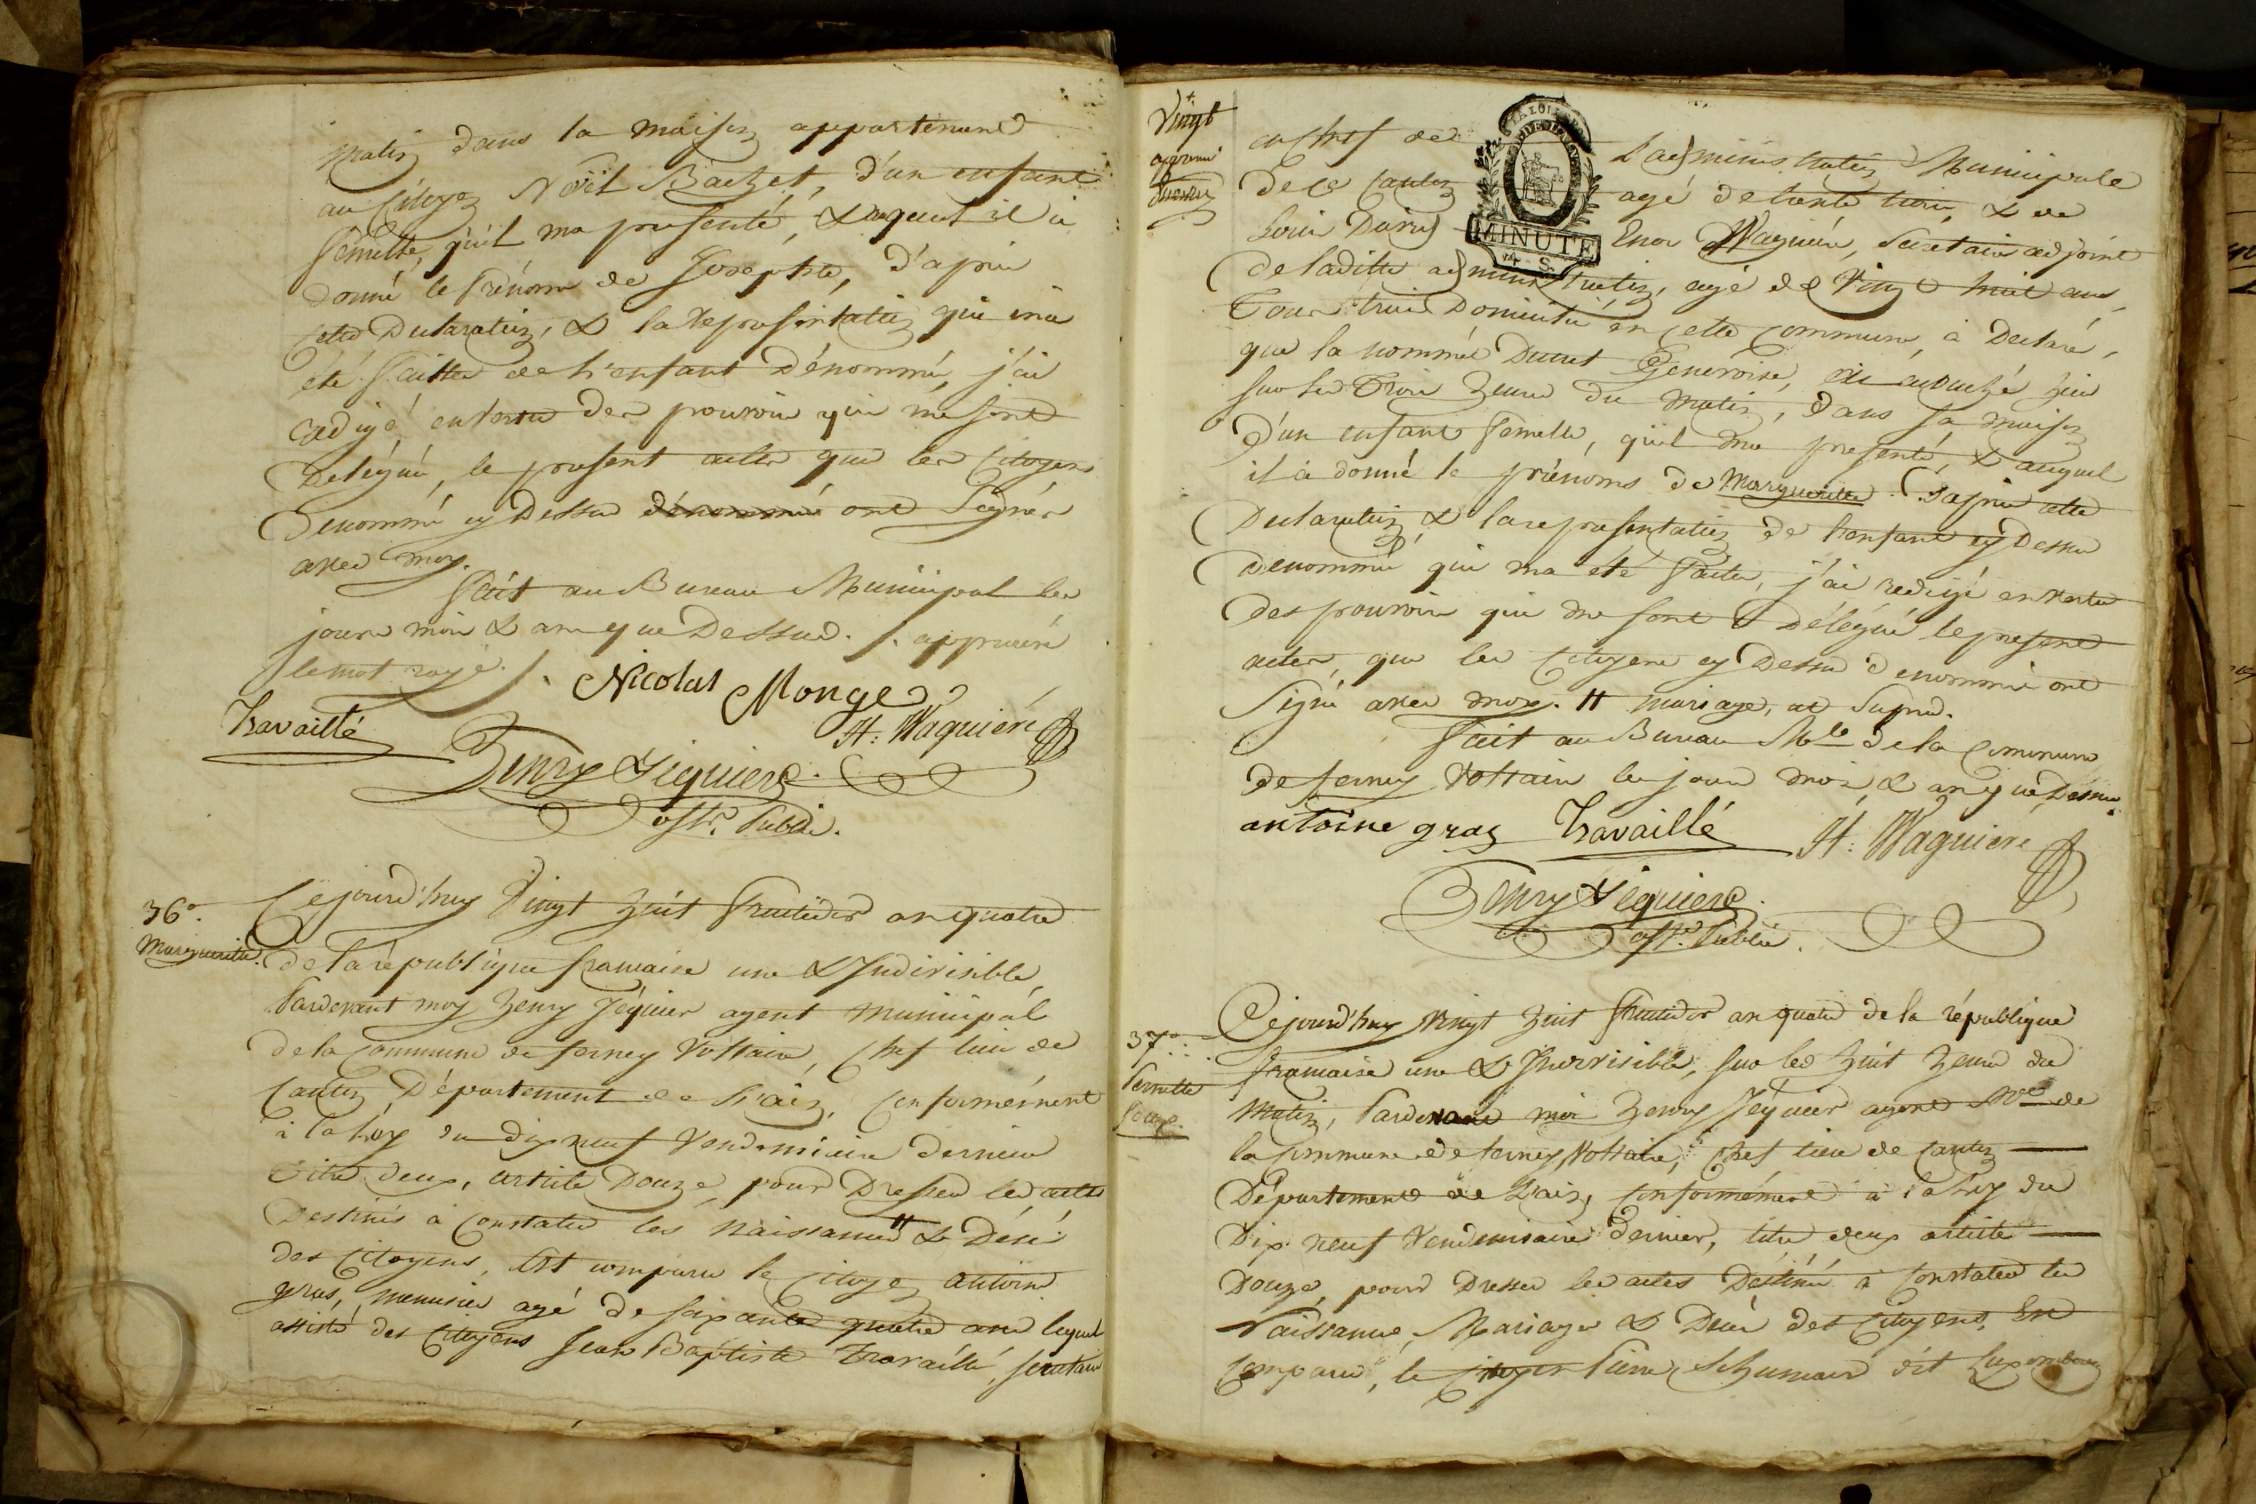 matin dans la maison appartenant
au Citoyen Noël Bachet, d'un enfant
femelle, qu'il ma presenté, & auquel il à
donné le Prénom de Josephte, d'après
cette Declaration, & la representation qui m'a
été faitte de L'enfant dénommé, j'ai
redigé, en vertu des pouvoirs qui me sont
Delégué, le present acte que les Citoyens
Denommé cy Dessus dénommé ont Signés
avec moy.
fait au Bureau Municipal les
jours mois & an que Dessus. /. approuvé
le mot rayé. /.
Nicolas Monge
Travaillé
H: Waguiere
Henry Jéquier
offr. Public.
36°.
Marguerite.
Cejourd'huy Vingt huit fructidor an quatre
de la république francaise une & Indivisible,
Pardevant moy henry Jéquier agent Municipal
de la Commune de ferney Voltaire, Chef lieu de
Canton, Département de L'ain, Conformément
à la Loy du dix neuf Vendemiaire dernier
titre deux, article Douze, pour Dresser les actes
Destinés à Constater les Naissances # & Décé
des Citoyens, Est comparu le Citoyen antoine
gras, menuisier agé de soixante quatre ans lequel
assisté des Citoyens Jean Baptiste Travaillé, secretaire
+
Vingt
approuvé
en chef de L'administration Municipale
de ce Canton agé de trente trois, & de
Louis David Enoc Waguiere, Secretaire adjoint
de laditte administration, agé de Vingt huit ans,
Tous trois Domicilié en cette Commune, à Declaré,
que la nommée Ducret Genevoise, est accouché hier
sur les Trois heures du matin, dans sa maison
D'un enfant femelle, qu'il ma presenté, & auquel
il à donné le prénoms de Marguerite. D'après cette
Declaration & la representation de l'enfant cy Dessus
denommé qui ma eté faite, j'ai redigé en vertu
des pouvoirs qui me sont Délégué le present
acte, que les Citoyens cy Dessus denommé ont
Signé avec moy. # mariage, ut Supra.
fait au Bureau Mle de la Commune
de ferney Voltaire les jour mois & an que Dessus.
antoine gras Travaillé H: Waguiere
Henry Jéquier
offr. Public.
37°.
Pernette
Louise.
Cejourd'huy Vingt huit fructidor an quatre de la république
francaise une & Indivisible, sur les huit heures du
Matin, Pardevant moi henry Jéquier agent Mal de
la Commune de ferney Voltaire, Chef lieu de Canton
Département de L'ain, Conformément à la Loy du
Dix neuf Vendemiaire dernier, titre deux article
Douze, pour Dresser les actes Destiné à Constater les
Naissance, Mariage & Décés des Citoyens, Est
Comparu, le Citoyen Pierre Schumair dit Luxembourg